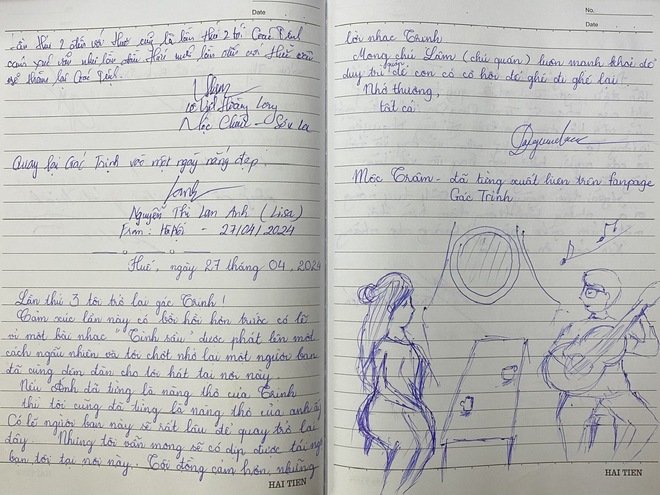 Date
Lần thứ 2 đến với Huế cũng là lần thứ 2 tới Gác Trịnh
cảm xúc vẫn như lần đầu. Hứa mỗi lần đến với Huế vẫn
sẽ thăm lại Gác Trịnh.
Hoàng Long
Mộc Châu - Sơn La
Quay lại Gác Trịnh vào một ngày nắng đẹp.
Lanh
Nguyễn Thị Lan Anh (Lisa)
From: Hà Nội - 27/04/2024
Huế, ngày 27 tháng 04, 2024
Lần thứ 3 tôi trở lại gác Trịnh!
Cảm xúc lần này có bồi hồi hơn trước có lẽ
vì một bài nhạc "Tình sầu" được phát lên một
cách ngẫu nhiên và tôi chợt nhớ lại một người bạn
đã cùng đệm đàn cho tôi hát tại nơi này
Nếu Anh đã từng là nàng thơ của Trịnh
thì tôi cũng đã từng là nàng thơ của anh ấy
Có lẽ người bạn này sẽ rất lâu để quay trở lại
đây Nhưng tôi vẫn mong sẽ có dịp được tái ngộ
bạn tôi tại nơi này. Tôi đồng cảm hơn, những
HAI TIEN
No.
Date
lời nhạc Trịnh
Mong chú Lâm (chủ quán) luôn mạnh khoẻ để
duy trì quán để con có cơ hội để ghé đi ghé lại
Nhớ thương,
tất cả
Mộc Trâm - đã từng xuất hiện trên fanpage
Gác Trịnh
HAI TIEN